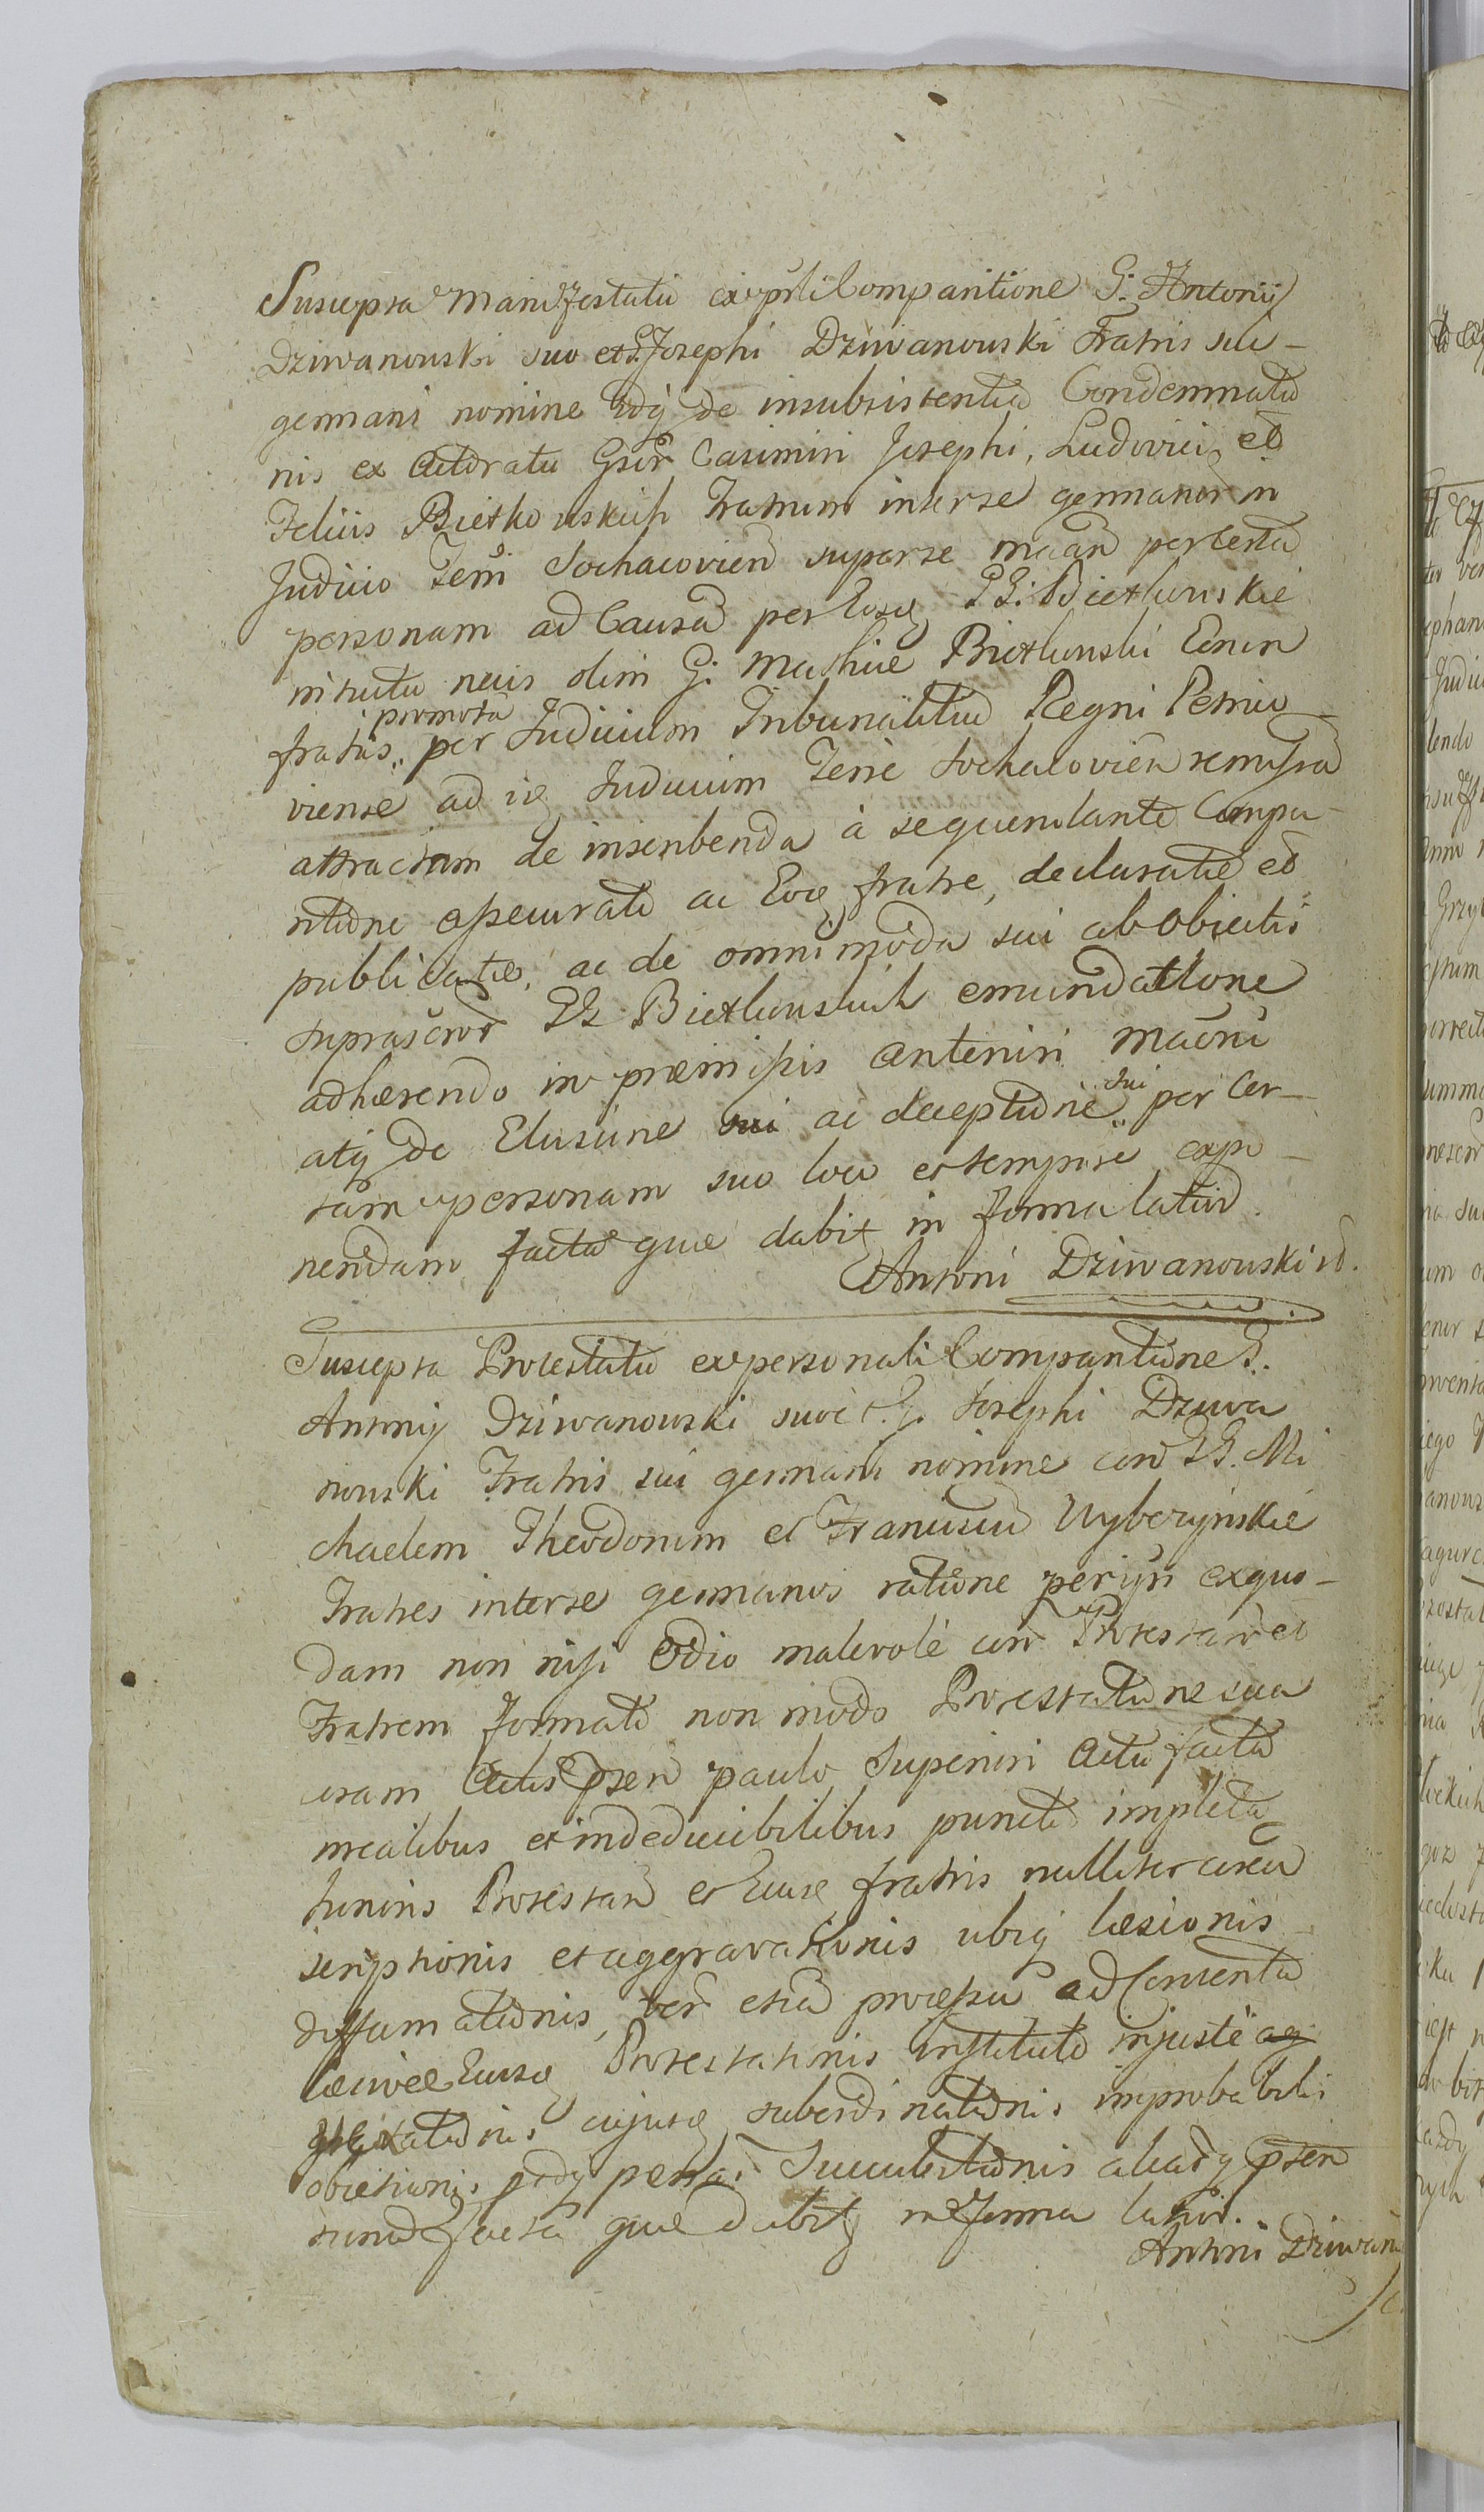 Suscepta Manifestatio ex prsli Comparitione G. Antonij
Dziwanowski suo et G. Josephi Dziwanowski Fratris sui -
germani nomine idq de insubsistentia Condemnatio
nis ex Actoratu Gsor Casimiri Josephi, Ludovici, et
Felicis Bietkowskich Fratrum inter se germanor in
Judicio Terri Sochacovien super se per certam
personam ad Causam per Eosq GG. Bietkowskie
necis olim G. Mathiae Bietkowski Eorun
fratris promota per Judicium Tribunalitium Regni Petrico
viense ad id Judicium Terre Sochacovien remissam
attractam de inscribenda à se querulante Compa
ritione assecurato ac Eoq fratre, declaratae et
publicatae, ac de omnimoda sui ab obiectis
suprascror GG Bietkowskich emundatione
adhaerendo in praemissis anteriori
atq de Elusione sui ac deceptione sui per Cer-
tam personam suo loco et tempore expo-
nendam facta que dabit in forma latiori.
Antoni Dziwanowski
Suscepta Protestatio ex personali Comparitione G.
Antonij Dziwanowski suo et G. Josephi Dziwa
nowski Fratris sui germani nomine con GG. Mi
chaelem Theodorum et Franciscum Wyberzynskie
Fratres inter se germanos ratione perijri ex quo-
dam non nisi Odio malevole con Protestan et
Fratrem formato non modo Protestatione sua
coram Actis psen paulo Superiori Actu facta
irrealibus et indeducibilibus punctis impleta
honoris Protestan et Eiusq fratris nulliter
scriptionis et aggravationis ubiq laesionis
diffamationis, etia processu ad Conventu
Eiusq Protestationis instituto injuste
cujusq subordinationis improbabilis
obiectionis Succulectionis
facta que dabit in forma latiori.
Antoni Dziwano